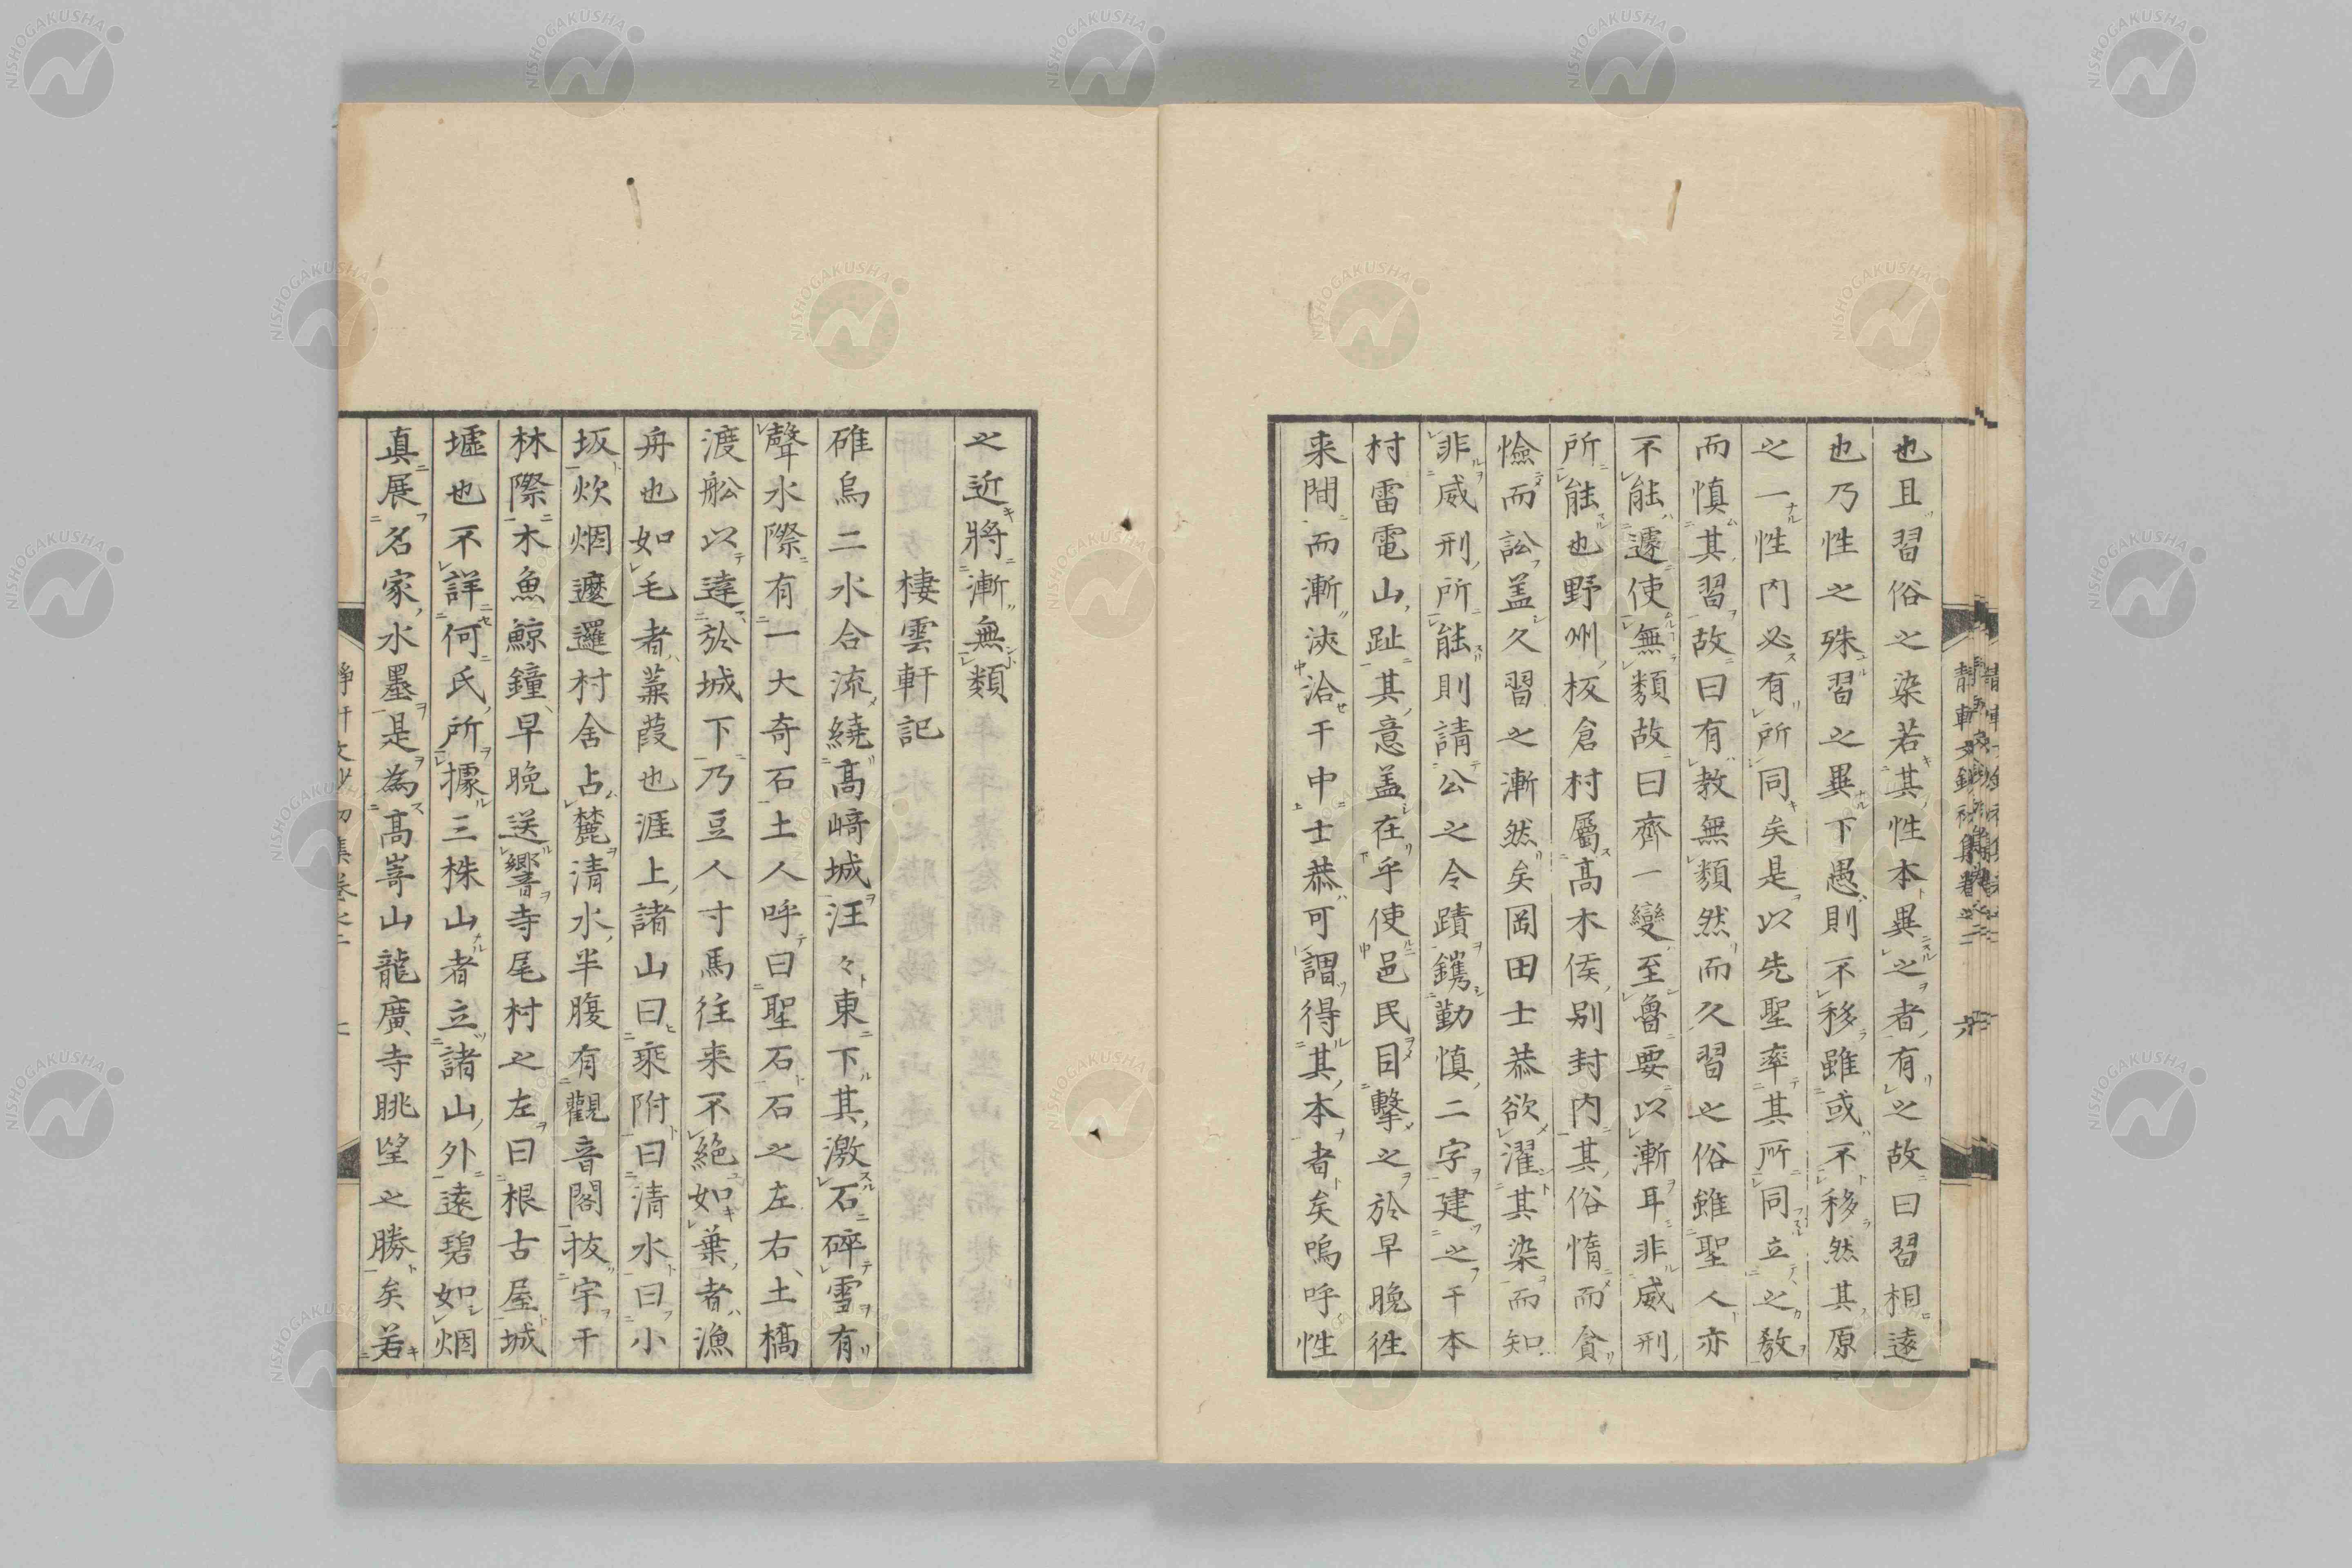 也且習俗之染若其性本異之者有之故曰習相遠
也乃性之殊習之異下愚則不移雖或不移然其原
之一性内必有所同矣是以先聖率其所同立之教
而慎其習故曰有教無類然而久習之俗雖聖人亦
不能遽使無類故曰齊一變至魯要以漸耳非威刑
所能也野州板倉村屬髙木侯別封内其俗惰而貪
憸而訟盖久習之漸然矣岡田士恭欲濯其染而知
非威刑所能則請公之令蹟鐫勤慎二字建之于本
村雷電山趾其意盖在乎使邑民目擊之於早晚徃
来間而漸浹洽于中士恭可謂得其本者矣嗚呼性
之近將漸無類
棲雲軒記
碓烏二水合流繞髙﨑城汪々東下其激石碎雪有
聲水際有一大奇石土人呼曰聖石石之左右土橋
渡舩以達於城下乃豆人寸馬往来不絶如葉者漁
舟也如毛者蒹葭也涯上諸山曰乘附曰清水曰小
坂炊烟邐邏村舍占麓清水半腹有觀音閣拔宇于
林際木魚鯨鐘早晚送響寺尾村之左曰根古屋城
墟也不詳何氏所據三株山者立諸山外遠碧如烟
真展名家水墨是為髙嵜山龍廣寺眺望之勝矣若